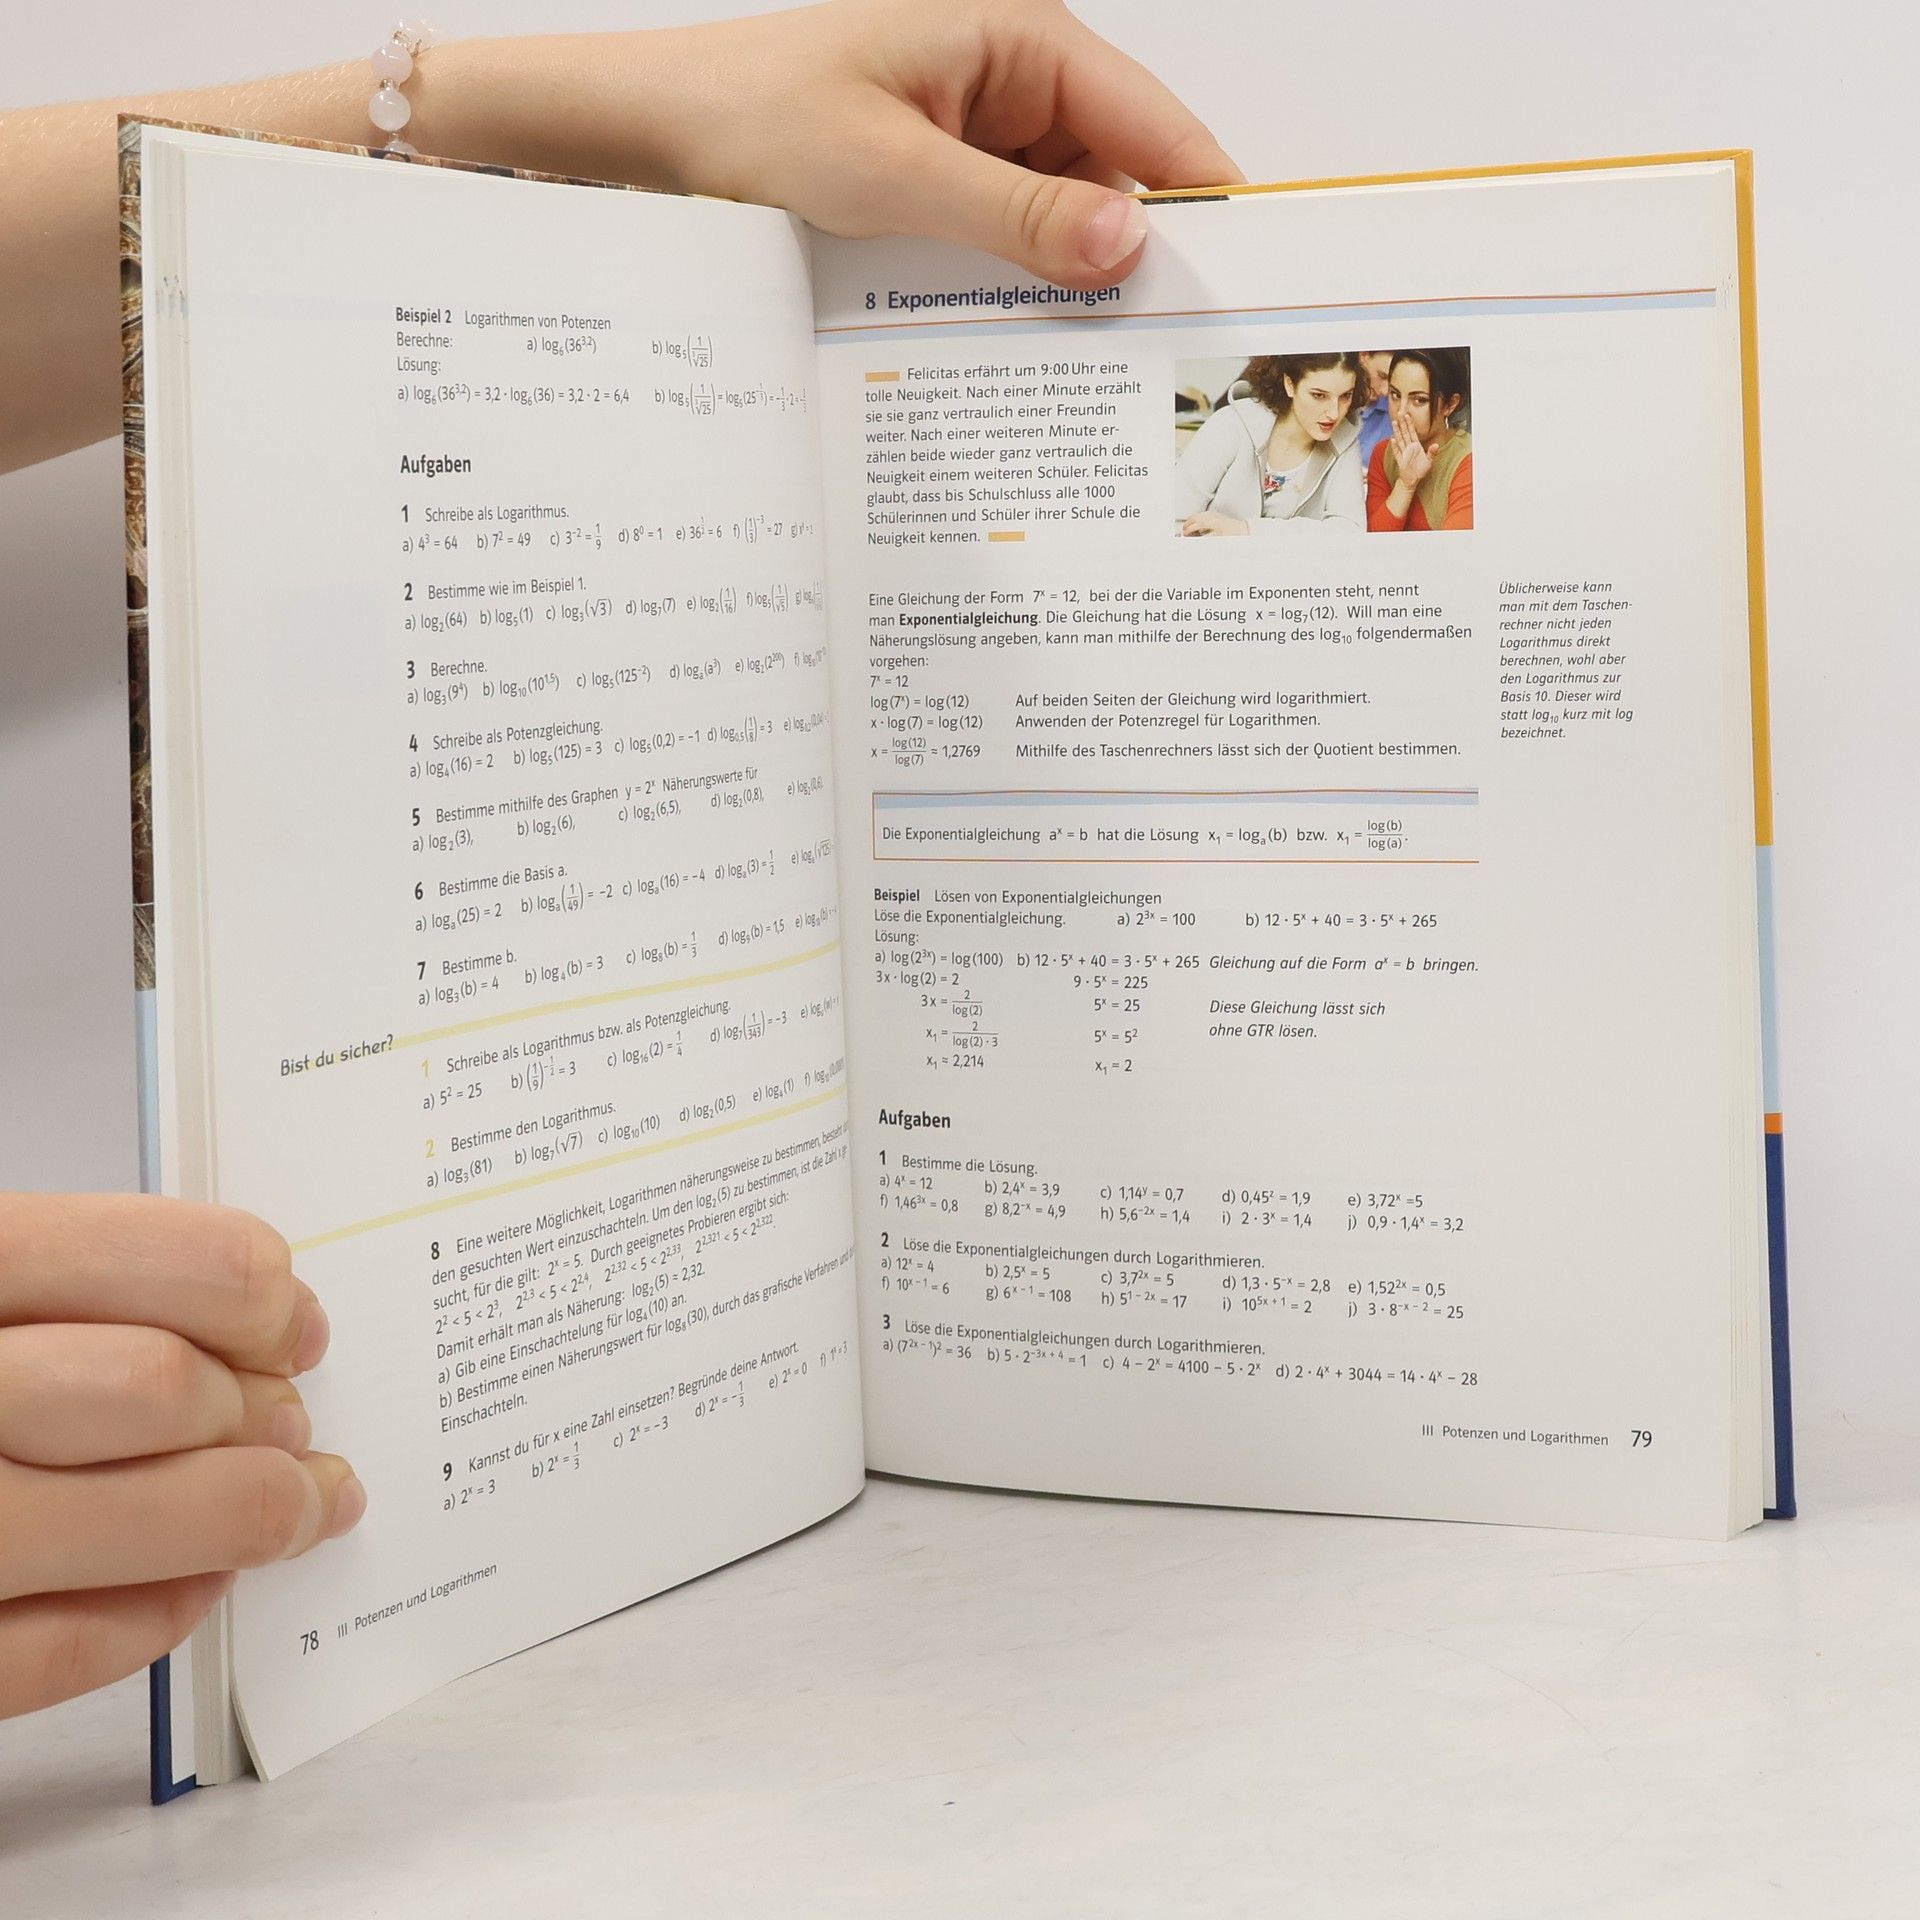 Beispiel 2 Logarithmen von Potenzen
Berechne: a) log₆(36^3,2) b) log₅(1/∛25)
Lösung:
a) log₆(36^3,2) = 3,2 · log₆(36) = 3,2 · 2 = 6,4 b) log₅(1/∛25) = log₅(25^(-1/3)) = -1/3 · 2 =
Aufgaben
1 Schreibe als Logarithmus.
a) 4³ = 64 b) 7² = 49 c) 3⁻² = 1/9 d) 8⁰ = 1 e) 36^(1/2) = 6 f) (1/3)⁻³ = 27 g)
2 Bestimme wie im Beispiel 1.
a) log₂(64) b) log₅(1) c) log₃(√3) d) log₇(7) e) log₂(1/16) f) log₅(1/√5) g)
3 Berechne.
a) log₃(9⁴) b) log₁₀(10^1,5) c) log₅(125⁻²) d) logₐ(a³) e) log₂(2²⁰⁰) f)
4 Schreibe als Potenzgleichung.
a) log₄(16) = 2 b) log₅(125) = 3 c) log₅(0,2) = −1 d) log₀,₅(1/8) = 3 e)
5 Bestimme mithilfe des Graphen y = 2ˣ Näherungswerte für
a) log₂(3), b) log₂(6), c) log₂(6,5), d) log₂(0,8), e) log₂(0,6),
6 Bestimme die Basis a.
a) logₐ(25) = 2 b) logₐ(1/49) = −2 c) logₐ(16) = −4 d) logₐ(3) = 1/2 e)
7 Bestimme b.
a) log₃(b) = 4 b) log₄(b) = 3 c) log₈(b) = 1/3 d) log₉(b) = 1,5 e)
Bist du sicher?
1 Schreibe als Logarithmus bzw. als Potenzgleichung.
a) 5² = 25 b) (1/9)^(-1/2) = 3 c) log₁₆(2) = 1/4 d) log₇(1/343) = −3 e)
2 Bestimme den Logarithmus.
a) log₃(81) b) log₇(√7) c) log₁₀(10) d) log₂(0,5) e) log₄(1) f)
8 Eine weitere Möglichkeit, Logarithmen näherungsweise zu bestimmen, besteht
den gesuchten Wert einzuschachteln. Um den log₂(5) zu bestimmen, ist die Zahl x
sucht, für die gilt: 2ˣ = 5. Durch geeignetes Probieren ergibt sich:
2² < 5 < 2³, 2^2,3 < 5 < 2^2,4, 2^2,32 < 5 < 2^2,33, 2^2,321 < 5 < 2^2,322.
Damit erhält man als Näherung: log₂(5) ≈ 2,32.
a) Gib eine Einschachtelung für log₄(10) an.
b) Bestimme einen Näherungswert für log₈(30), durch das grafische Verfahren und
Einschachteln.
9 Kannst du für x eine Zahl einsetzen? Begründe deine Antwort.
a) 2ˣ = 3 b) 2ˣ = 1/3 c) 2ˣ = −3 d) 2ˣ = −1/3 e) 2ˣ = 0 f) 1ˣ = 3
78 III Potenzen und Logarithmen
8 Exponentialgleichungen
Felicitas erfährt um 9:00 Uhr eine
tolle Neuigkeit. Nach einer Minute erzählt
sie sie ganz vertraulich einer Freundin
weiter. Nach einer weiteren Minute er-
zählen beide wieder ganz vertraulich die
Neuigkeit einem weiteren Schüler. Felicitas
glaubt, dass bis Schulschluss alle 1000
Schülerinnen und Schüler ihrer Schule die
Neuigkeit kennen.
Eine Gleichung der Form 7ˣ = 12, bei der die Variable im Exponenten steht, nennt
man Exponentialgleichung. Die Gleichung hat die Lösung x = log₇(12). Will man eine
Näherungslösung angeben, kann man mithilfe der Berechnung des log₁₀ folgendermaßen
vorgehen:
7ˣ = 12
log(7ˣ) = log(12) Auf beiden Seiten der Gleichung wird logarithmiert.
x · log(7) = log(12) Anwenden der Potenzregel für Logarithmen.
x = log(12)/log(7) ≈ 1,2769 Mithilfe des Taschenrechners lässt sich der Quotient bestimmen.
Üblicherweise kann
man mit dem Taschen-
rechner nicht jeden
Logarithmus direkt
berechnen, wohl aber
den Logarithmus zur
Basis 10. Dieser wird
statt log₁₀ kurz mit log
bezeichnet.
Die Exponentialgleichung aˣ = b hat die Lösung x₁ = logₐ(b) bzw. x₁ = log(b)/log(a).
Beispiel Lösen von Exponentialgleichungen
Löse die Exponentialgleichung. a) 2³ˣ = 100 b) 12 · 5ˣ + 40 = 3 · 5ˣ + 265
Lösung:
a) log(2³ˣ) = log(100) b) 12 · 5ˣ + 40 = 3 · 5ˣ + 265 Gleichung auf die Form aˣ = b bringen.
3x · log(2) = 2 9 · 5ˣ = 225
3x = 2/log(2) 5ˣ = 25 Diese Gleichung lässt sich
x₁ = 2/(log(2) · 3) 5ˣ = 5² ohne GTR lösen.
x₁ ≈ 2,214 x₁ = 2
Aufgaben
1 Bestimme die Lösung.
a) 4ˣ = 12 b) 2,4ˣ = 3,9 c) 1,14ʸ = 0,7 d) 0,45ᶻ = 1,9 e) 3,72ˣ =5
f) 1,46³ˣ = 0,8 g) 8,2⁻ˣ = 4,9 h) 5,6⁻²ˣ = 1,4 i) 2 · 3ˣ = 1,4 j) 0,9 · 1,4ˣ = 3,2
2 Löse die Exponentialgleichungen durch Logarithmieren.
a) 12ˣ = 4 b) 2,5ˣ = 5 c) 3,7²ˣ = 5 d) 1,3 · 5⁻ˣ = 2,8 e) 1,52²ˣ = 0,5
f) 10ˣ⁻¹ = 6 g) 6ˣ⁻¹ = 108 h) 5¹⁻²ˣ = 17 i) 10⁵ˣ⁺¹ = 2 j) 3 · 8⁻ˣ⁻² = 25
3 Löse die Exponentialgleichungen durch Logarithmieren.
a) (7²ˣ⁻¹)² = 36 b) 5 · 2⁻³ˣ⁺⁴ = 1 c) 4 − 2ˣ = 4100 − 5 · 2ˣ d) 2 · 4ˣ + 3044 = 14 · 4ˣ − 28
III Potenzen und Logarithmen 79